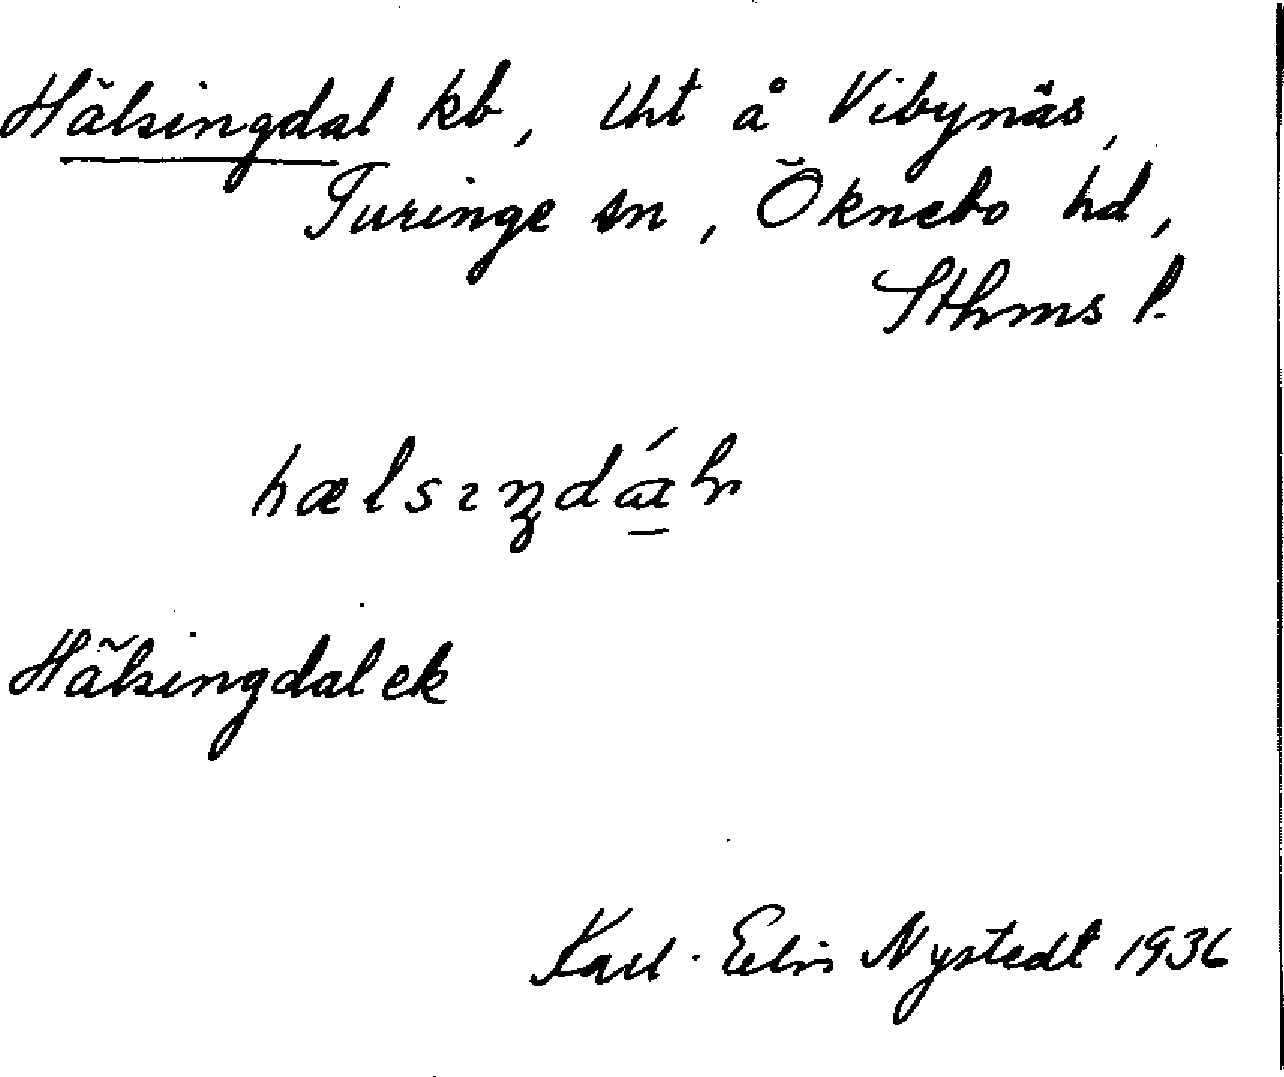 Hälsingdal kb, tht å Vibynäs,
Turinge sn, Öknebo hd,
Sthms l.
Hälsingdal ek
Karl-Elis Nystedt 1936